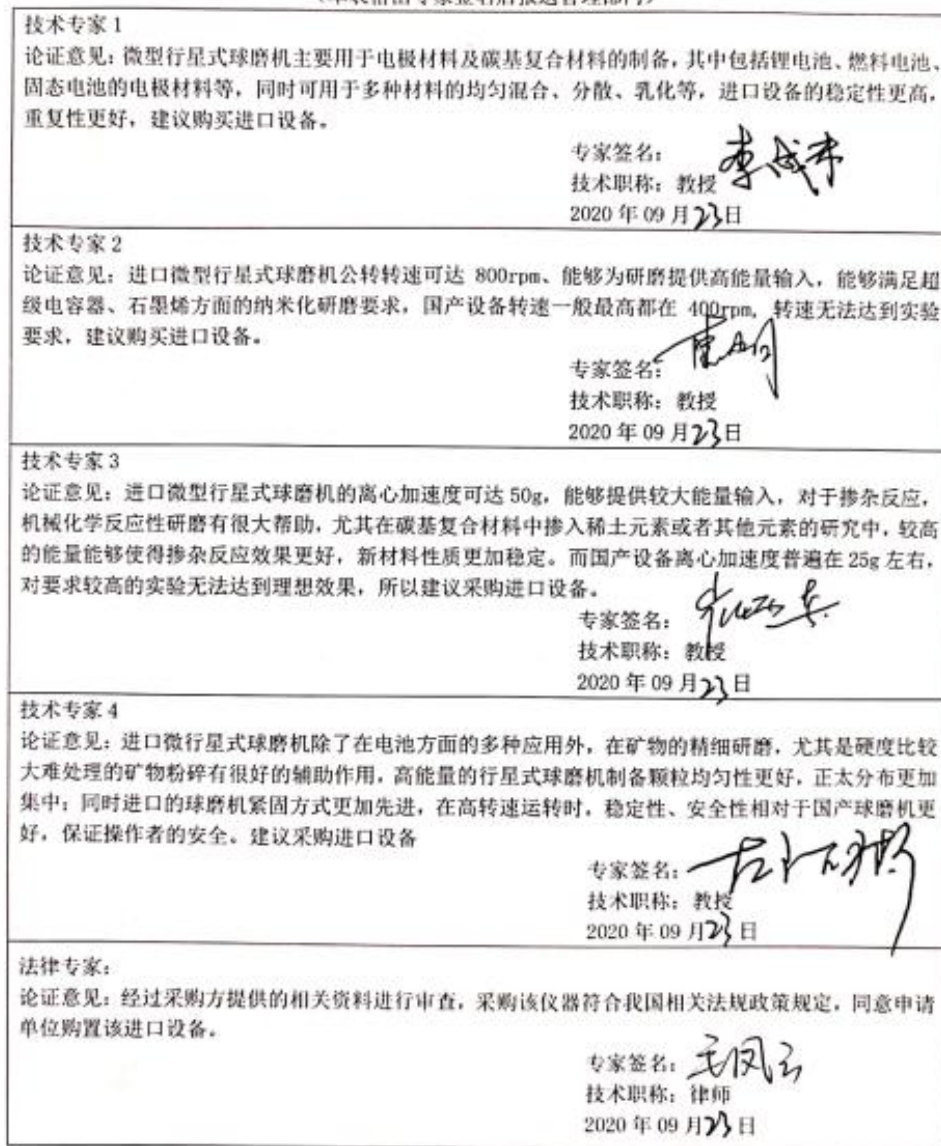 技术专家 1
论证意见：微型行星式球磨机主要用于电极材料及碳基复合材料的制备，其中包括锂电池、燃料电池、
固态电池的电极材料等，同时可用于多种材料的均匀混合、分散、乳化等，进口设备的稳定性更高，
重复性更好，建议购买进口设备。
专家签名：
技术职称：教授
2020 年 09 月 23 日
技术专家 2
论证意见：进口微型行星式球磨机公转转速可达 800rpm、能够为研磨提供高能量输入，能够满足超
级电容器、石墨烯方面的纳米化研磨要求，国产设备转速一般最高都在 400rpm，转速无法达到实验
要求，建议购买进口设备。
专家签名：
技术职称：教授
2020 年 09 月 23 日
技术专家 3
论证意见：进口微型行星式球磨机的离心加速度可达 50g，能够提供较大能量输入，对于掺杂反应，
机械化学反应性研磨有很大帮助，尤其在碳基复合材料中掺入稀土元素或者其他元素的研究中，较高
的能量能够使得掺杂反应效果更好，新材料性质更加稳定。而国产设备离心加速度普遍在 25g 左右，
对要求较高的实验无法达到理想效果，所以建议采购进口设备。
专家签名：
技术职称：教授
2020 年 09 月 23 日
技术专家 4
论证意见：进口微行星式球磨机除了在电池方面的多种应用外，在矿物的精细研磨，尤其是硬度比较
大难处理的矿物粉碎有很好的辅助作用，高能量的行星式球磨机制备颗粒均匀性更好，正太分布更加
集中；同时进口的球磨机紧固方式更加先进，在高转速运转时，稳定性、安全性相对于国产球磨机更
好，保证操作者的安全。建议采购进口设备
专家签名：
技术职称：教授
2020 年 09 月 23 日
法律专家：
论证意见：经过采购方提供的相关资料进行审查，采购该仪器符合我国相关法规政策规定，同意申请
单位购置该进口设备。
专家签名：王凤云
技术职称：律师
2020 年 09 月 23 日